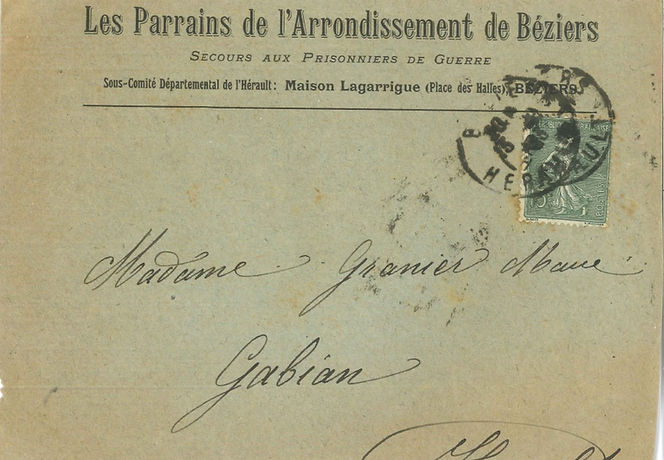 Les Parrains de l'Arrondissement de Béziers
Secours aux Prisonniers de Guerre
Sous-Comité Départemental de l'Hérault: Maison Lagarrigue (Place des Halles), BÉZIERS
HÉRAULT
15
Madame Granier Marie
Gabian